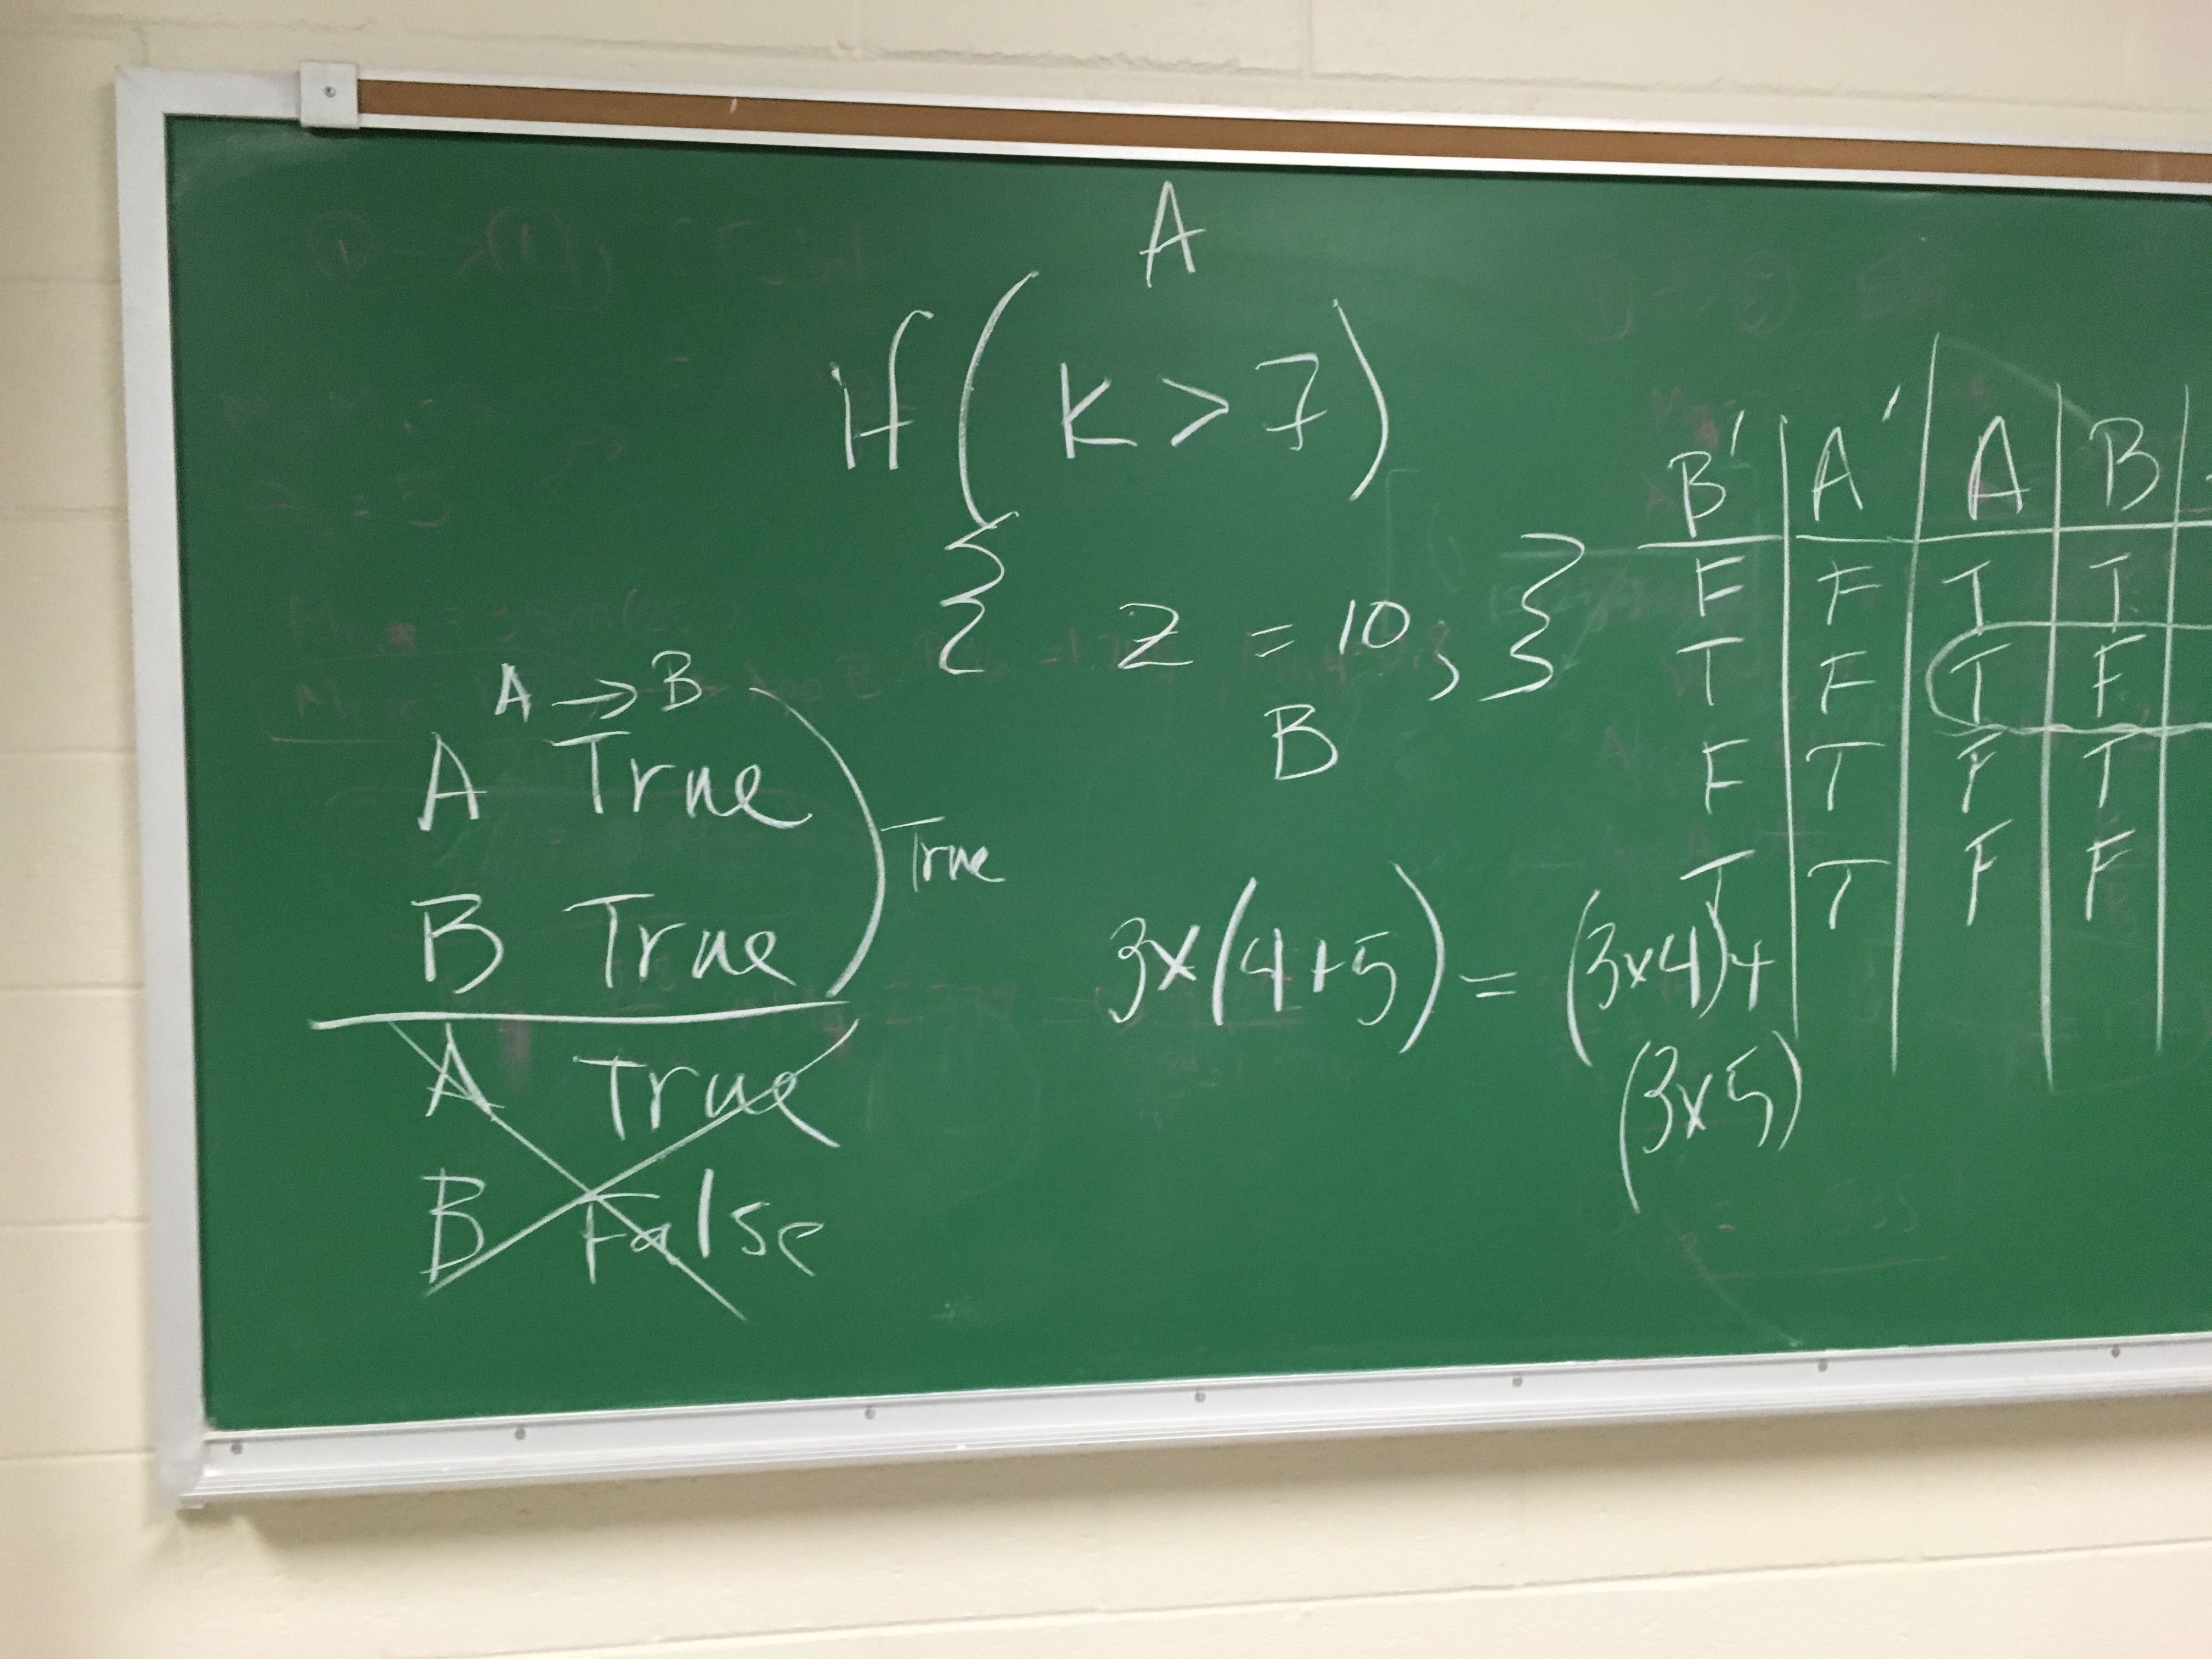 A
if ( K > 7 )
{ z = 10; }
B
A → B
A True
B True
True
A True
B False
3x(4+5) = (3x4)+
(3x5)
B' A' A B
F F T T
T F T F
F T F T
T T F F